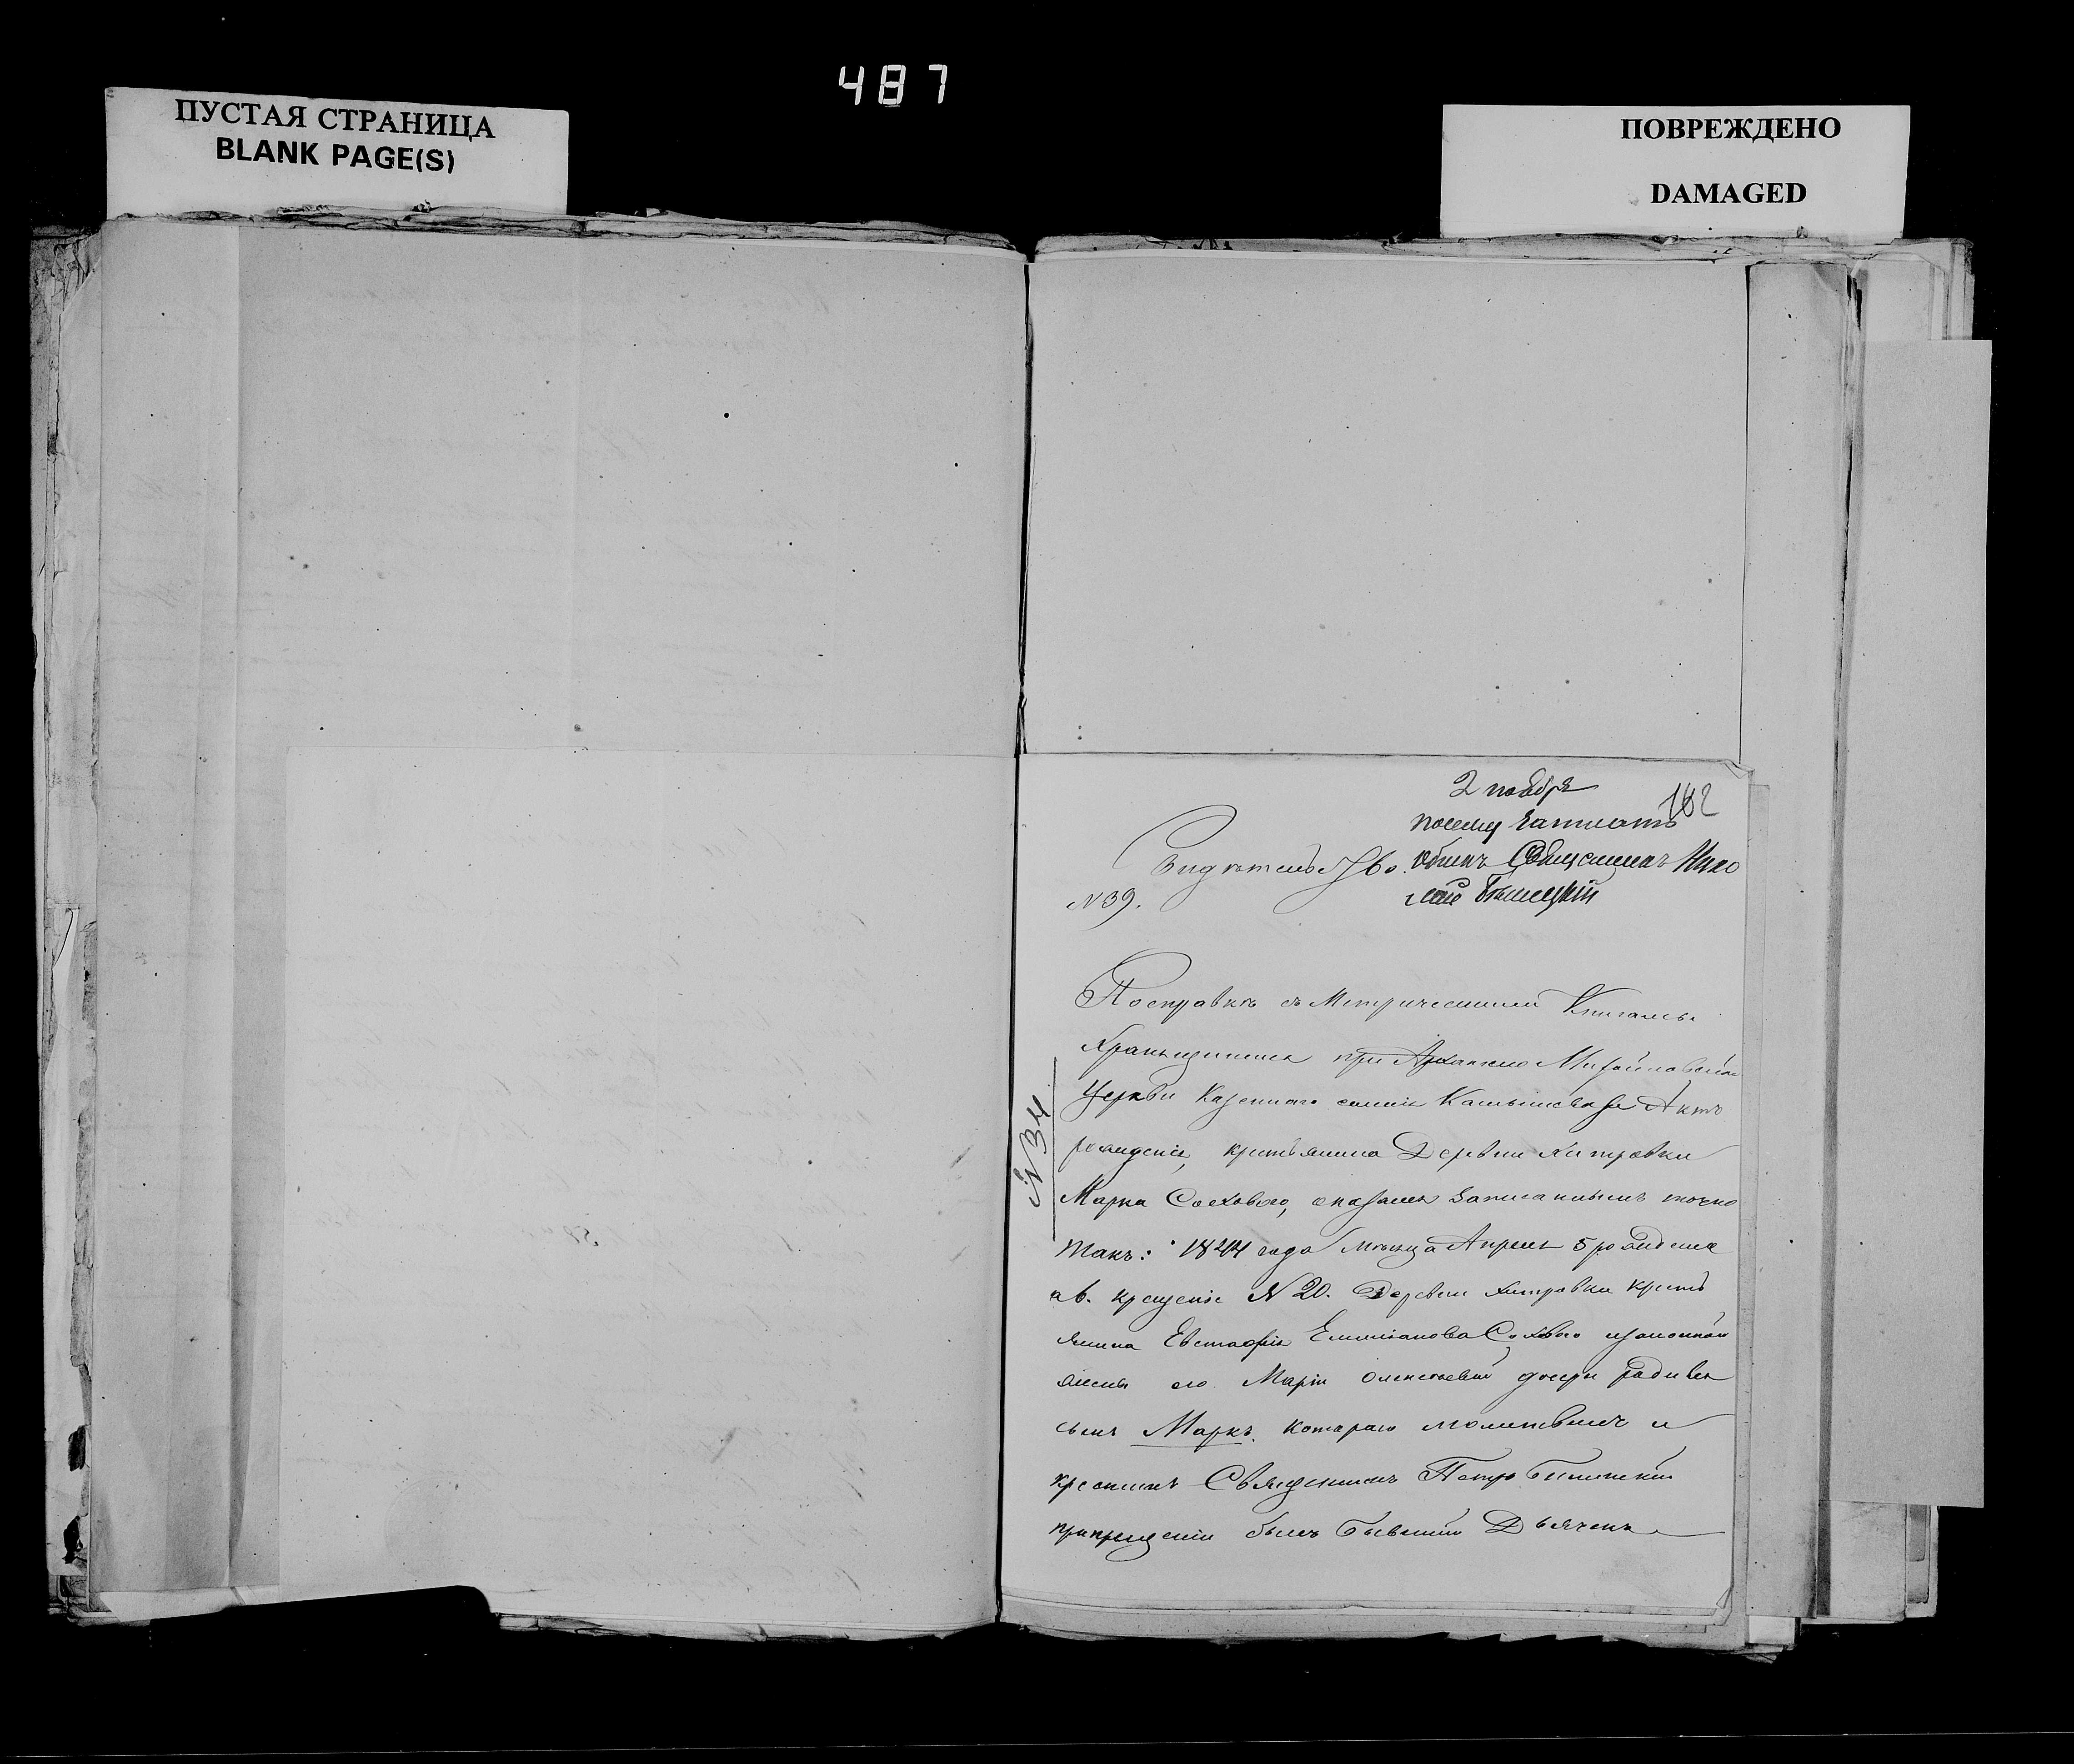 487
ПУСТАЯ СТРАНИЦА
BLANK PAGE(S)
ПОВРЕЖДЕНО
DAMAGED
2 ноября
182
посему
Свидетельство.
Священникъ Нико
лай
N 39.
По справкѣ съ Метрическими Книгами
хранящимися при Архангело Михайловской
Церкви Казеннаго селенія Камышеваха Актъ
рожденія, крестьянина Деревни Хитровки
N 34
Марка Сохового, оказался Записаннымъ точно
такъ: 1844 года Мѣсяца Апреля 5 рожденъ
а 6. крещенъ N 20. Деревни Хитровки крестья
янина Евстафія Емилианова Сохвого изаконной
жены его Маріи Алексѣевой дочери родился
сынъ Маркъ. Котораго молитвилъ и
крестилъ Священникъ Петръ
при крещеніи былъ бывшій Дьячекъ